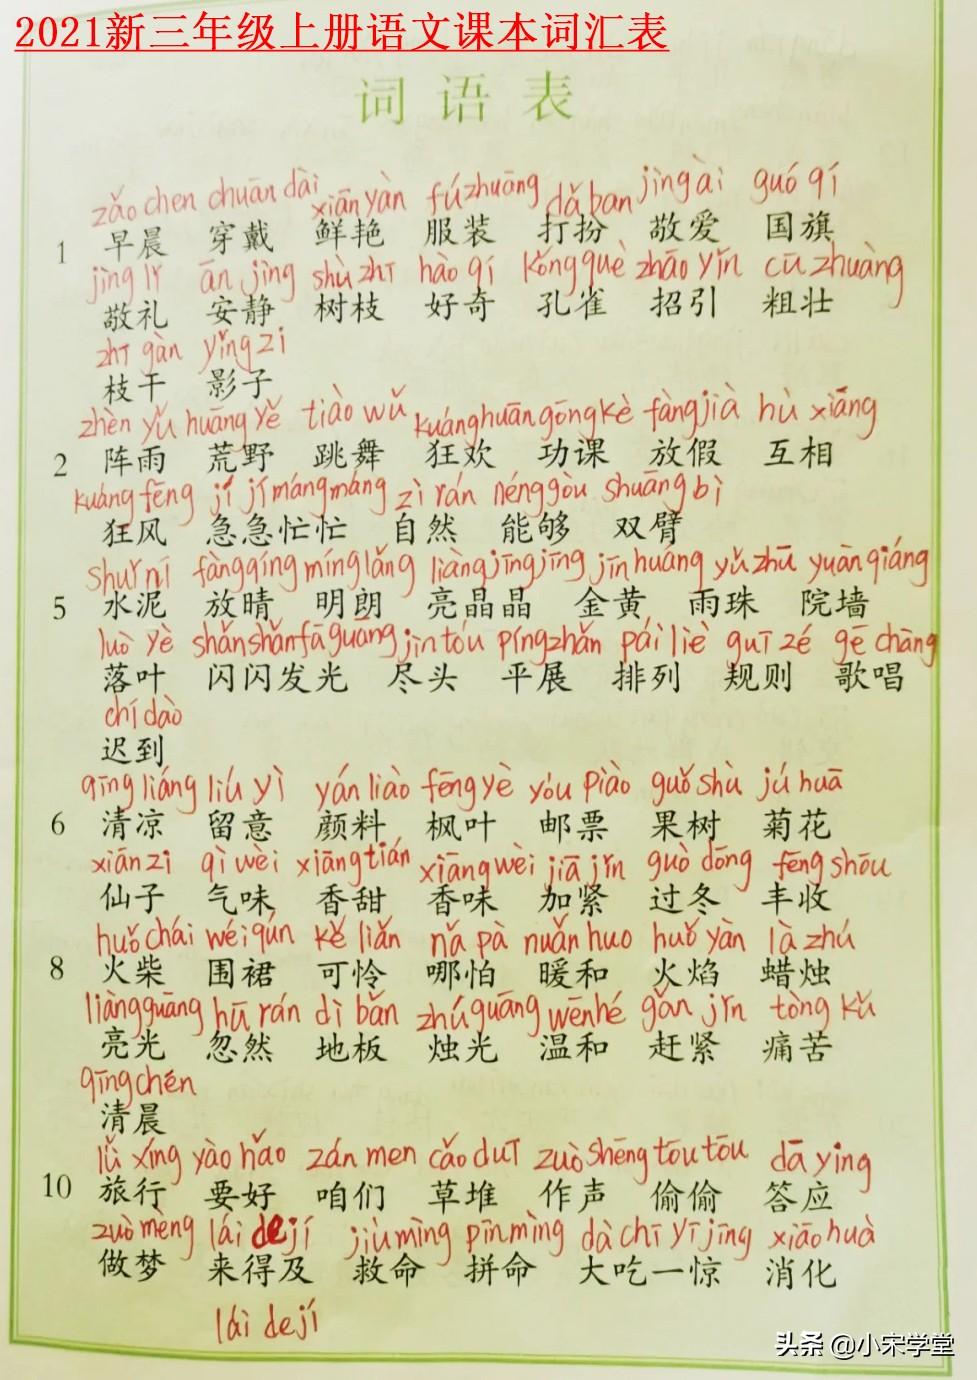 2021新三年级上册语文课本词汇表
词语表
zǎo chen chuān dài xiān yàn fú zhuāng dǎ ban jìng ài guó qí
1 早晨 穿戴 鲜艳 服装 打扮 敬爱 国旗
jìng lǐ ān jìng shù zhī hào qí kǒng què zhāo yǐn cū zhuàng
敬礼 安静 树枝 好奇 孔雀 招引 粗壮
zhī gàn yǐng zi
枝干 影子
zhèn yǔ huāng yě tiào wǔ kuáng huān gōng kè fàng jià hù xiāng
2 阵雨 荒野 跳舞 狂欢 功课 放假 互相
kuáng fēng jí jí máng máng zì rán néng gòu shuāng bì
狂风 急急忙忙 自然 能够 双臂
shuǐ ní fàng qíng míng lǎng liàng jīng jīng jīn huáng yǔ zhū yuàn qiáng
5 水泥 放晴 明朗 亮晶晶 金黄 雨珠 院墙
luò yè shǎn shǎn fā guāng jìn tóu píng zhǎn pái liè guī zé gē chàng
落叶 闪闪发光 尽头 平展 排列 规则 歌唱
chí dào
迟到
qīng liáng liú yì yán liào fēng yè yóu piào guǒ shù jú huā
6 清凉 留意 颜料 枫叶 邮票 果树 菊花
xiān zi qì wèi xiāng tián xiāng wèi jiā jǐn guò dōng fēng shōu
仙子 气味 香甜 香味 加紧 过冬 丰收
huǒ chái wéi qún kě lián nǎ pà nuǎn huo huǒ yàn là zhú
8 火柴 围裙 可怜 哪怕 暖和 火焰 蜡烛
liàng guāng hū rán dì bǎn zhú guāng wēn hé gǎn jǐn tòng kǔ
亮光 忽然 地板 烛光 温和 赶紧 痛苦
qīng chén
清晨
lǚ xíng yào hǎo zán men cǎo duī zuò shēng tōu tōu dā ying
10 旅行 要好 咱们 草堆 作声 偷偷 答应
zuò mèng lái de jí jiù mìng pīn mìng dà chī yī jīng xiāo huà
做梦 来得及 救命 拼命 大吃一惊 消化
lái de jí
头条 @小宋学堂